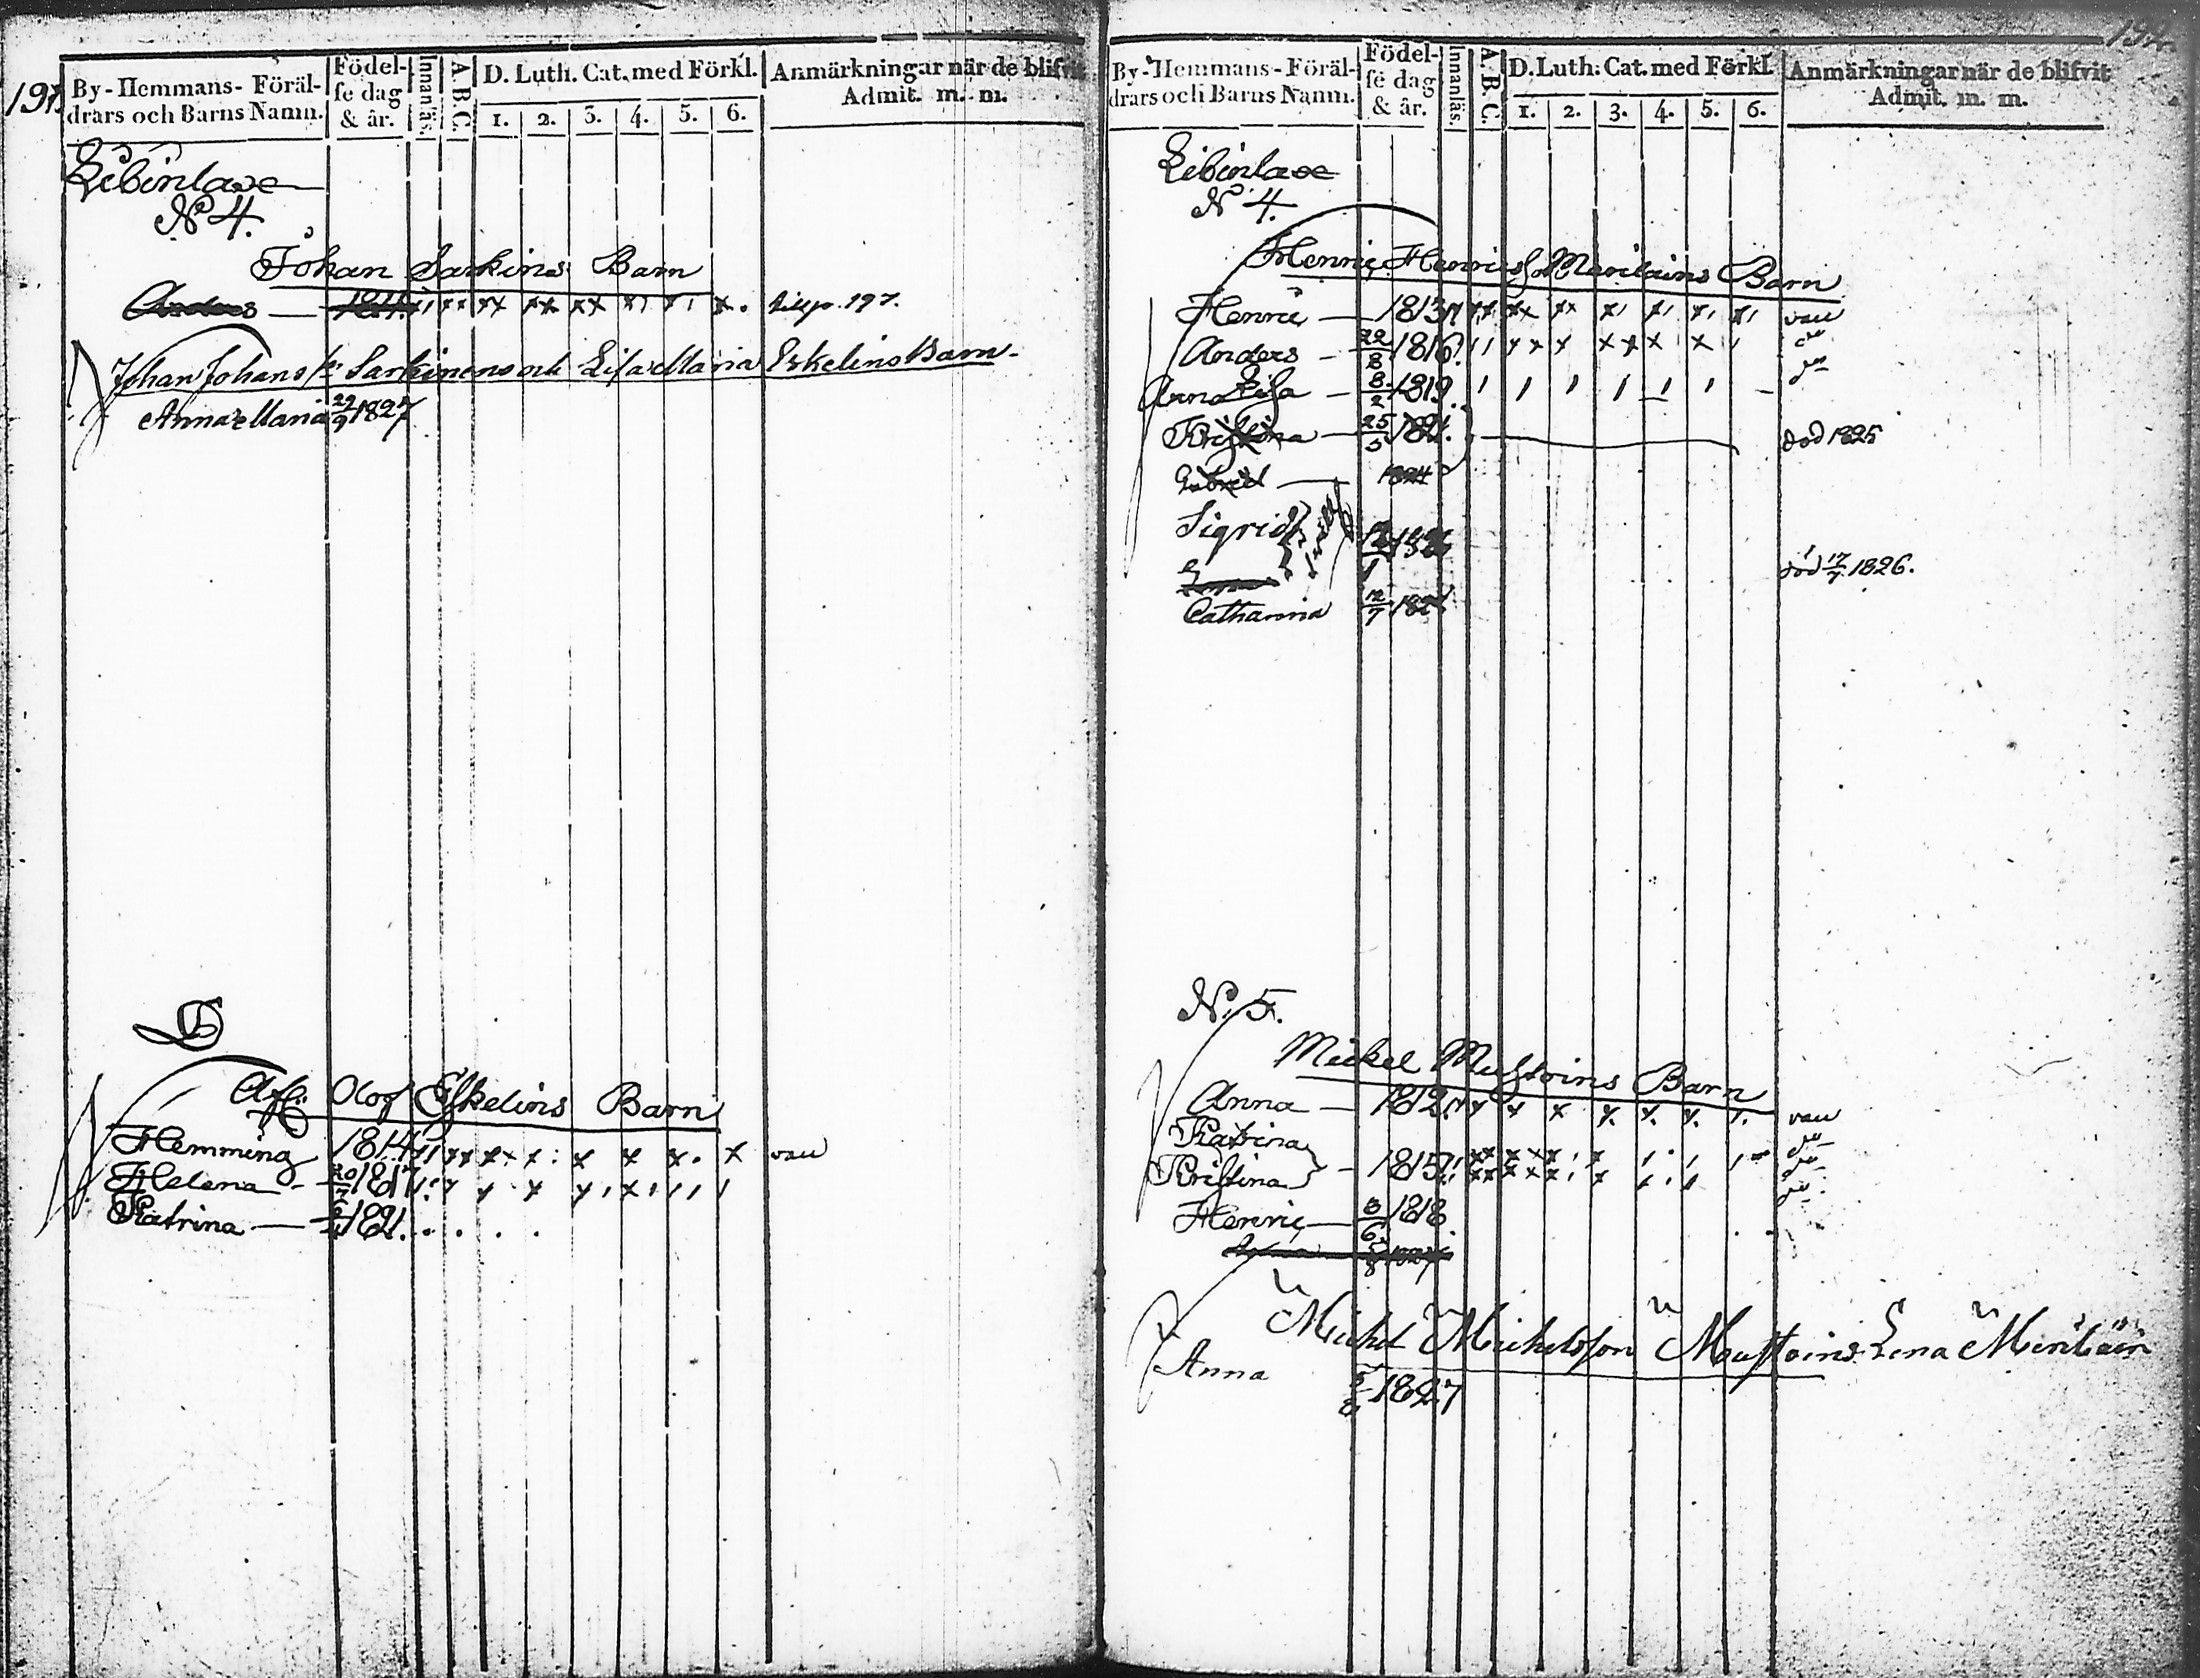 By-Hemmans-Föräl-
drars och Barns Namn.
Födel-
se dag
& år.
Innanläs.
A. B. C.
D. Luth. Cat. med Förkl.
1. 2. 3. 4. 5. 6.
Anmärkningar när de blifvit
Admit. m. m.
N 4.
Johan Sarkins Barn
Anders
Johan Johans Sarkinens och Lisa Maria Eskelins Barn
Anna Maria 29/9 1827
Olof Eskelins Barn
Hemming 1814
Helena 1817
Katrina 1821.
By-Hemmans-Föräl-
drars och Barns Namn.
Födel-
se dag
& år.
Innanläs.
A. B. C.
D. Luth. Cat. med Förkl.
1. 2. 3. 4. 5. 6.
Anmärkningar när de blifvit
Admit. m. m.
N 4.
Henric Henrics Meriläins Barn
Henric 1813
Anders 22/8 1816
Anna Lisa 8/2 1819
Kristina 25/5 död 1825
Gabriel 1824
Sigrid
död 17/7 1826.
Catharina 12/7
N. 5.
Mickel Mustoins Barn
Anna 1812
Katrina
Kristina 1815
Henric 3/6 1818
Michel Michelsson Mustoins Lena Meriläin
Anna 1827